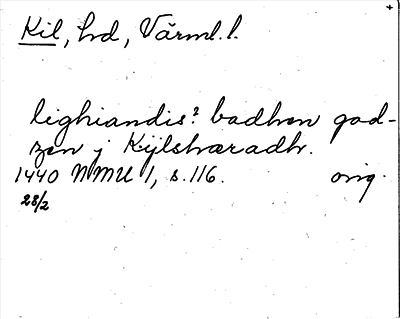 Kil, hd, Värml. l.
lighiandis? badhen god-
zen j Kijlshæradh.
1440 NMU 1, s. 116. orig.
28/2